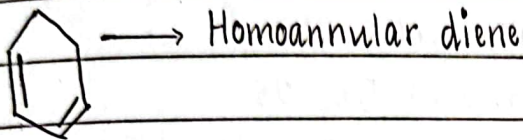 ⟶ Homoannular diene